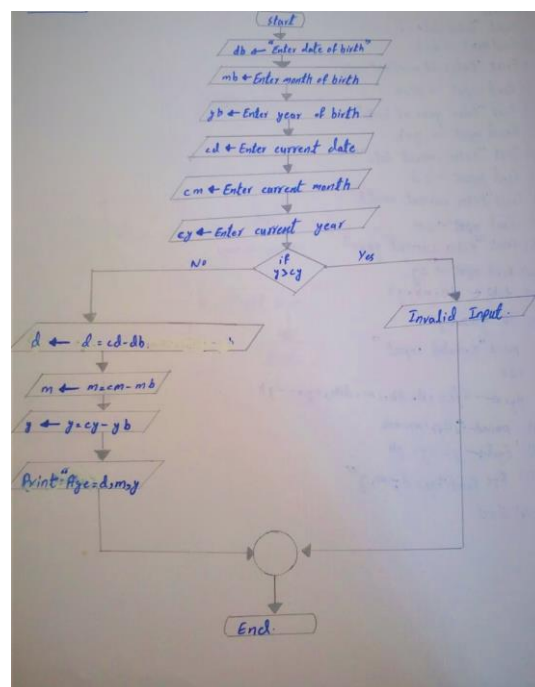 Start
db ← "Enter date of birth"
mb ← Enter month of birth
yb ← Enter year of birth
cd ← Enter current date
cm ← Enter current month
cy ← Enter current year
if
y>cy
No
Yes
Invalid Input.
d ← d = cd-db
m ← m=cm-mb
y ← y=cy-yb
Print "Age=d,m,y
End.